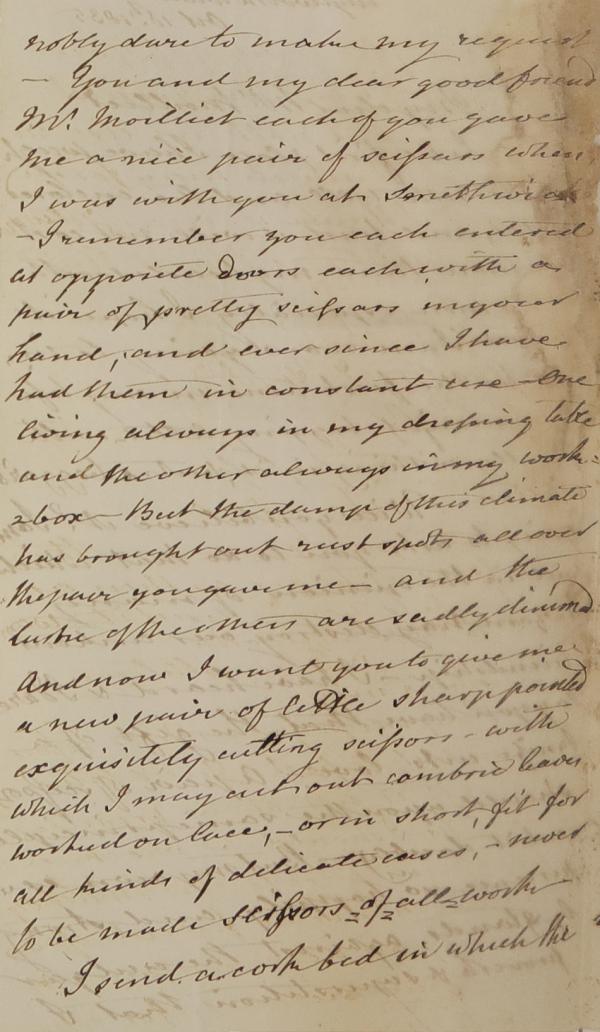 nobly dare to make my request
— You and my dear good friend
Mr. Moilliet each of you gave
me a nice pair of scifsars when
I was with you at Smethwick
— I remember you each entered
at opposite doors each with a
pair of pretty scifsars in your
hand, and ever since I have
had them in constant use — One
living always in my drefsing table
and the other always in my work=
=box — But the damp of this climate
has brought out rust spots all over
the pair you gave me — and the
lustre of the others are sadly dimmed
And now I want you to give me
a new pair of little sharp pointed
exquisitely cutting scifsors — with
which I may cut out cambric leaves
worked on lace, — or in short, fit for
all kinds of delicate cases, — never
to be made scifsors = of = all = work —
I send a cork bed in which the